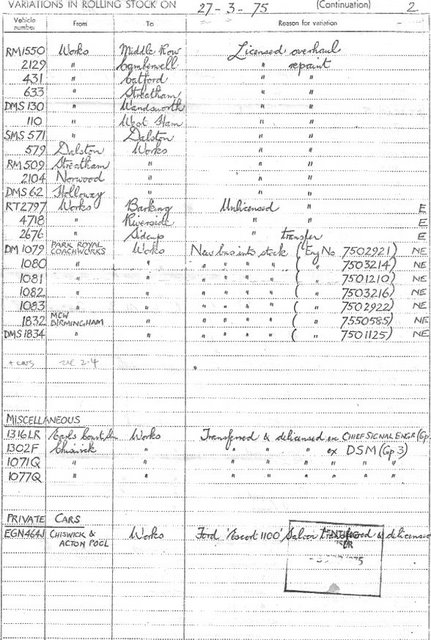 VARIATIONS IN ROLLING STOCK ON 27-3-75 (Continuation) 2
Vehicle number From To Reason for variation
RM1550 Works Middle Row Licensed overhaul
2129 " Camberwell " repaint
431 " Catford " "
633 " Streatham " "
DMS 130 " Wandsworth " "
110 " West Ham " "
SMS 571 " Dalston " "
579 Dalston Works " "
RM 509 Streatham " " "
2104 Norwood " " "
DMS 62 Holloway " " "
RT2797 Works Barking Unlicensed " E
4718 " Riverside " " E
2676 " Sidcup " transfer E
DM 1079 PARK ROYAL COACHWORKS Works New bus into stock (Eng No 7502921) NE
1080 " " " " " " ( " 7503214) NE
1081 " " " " " " ( " 7501210) NE
1082 " " " " " " ( " 7503216) NE
1083 " " " " " " ( " 7502922) NE
1832 MCW BIRMINGHAM " " " " " ( " 7550585) NE
DMS 1834 " " " " " " ( " 7501125) NE
MISCELLANEOUS
1316LR Earls Court Works Transferred & delicensed ex CHIEF SIGNAL ENGR (Gp
1302F Chiswick " " " " ex DSM (Gp 3)
1071Q " " " " " " "
1077Q " " " " " " "
PRIVATE CARS
EGN464J CHISWICK & ACTON POOL Works Ford 'Escort 1100' Saloon Transferred & delicensed